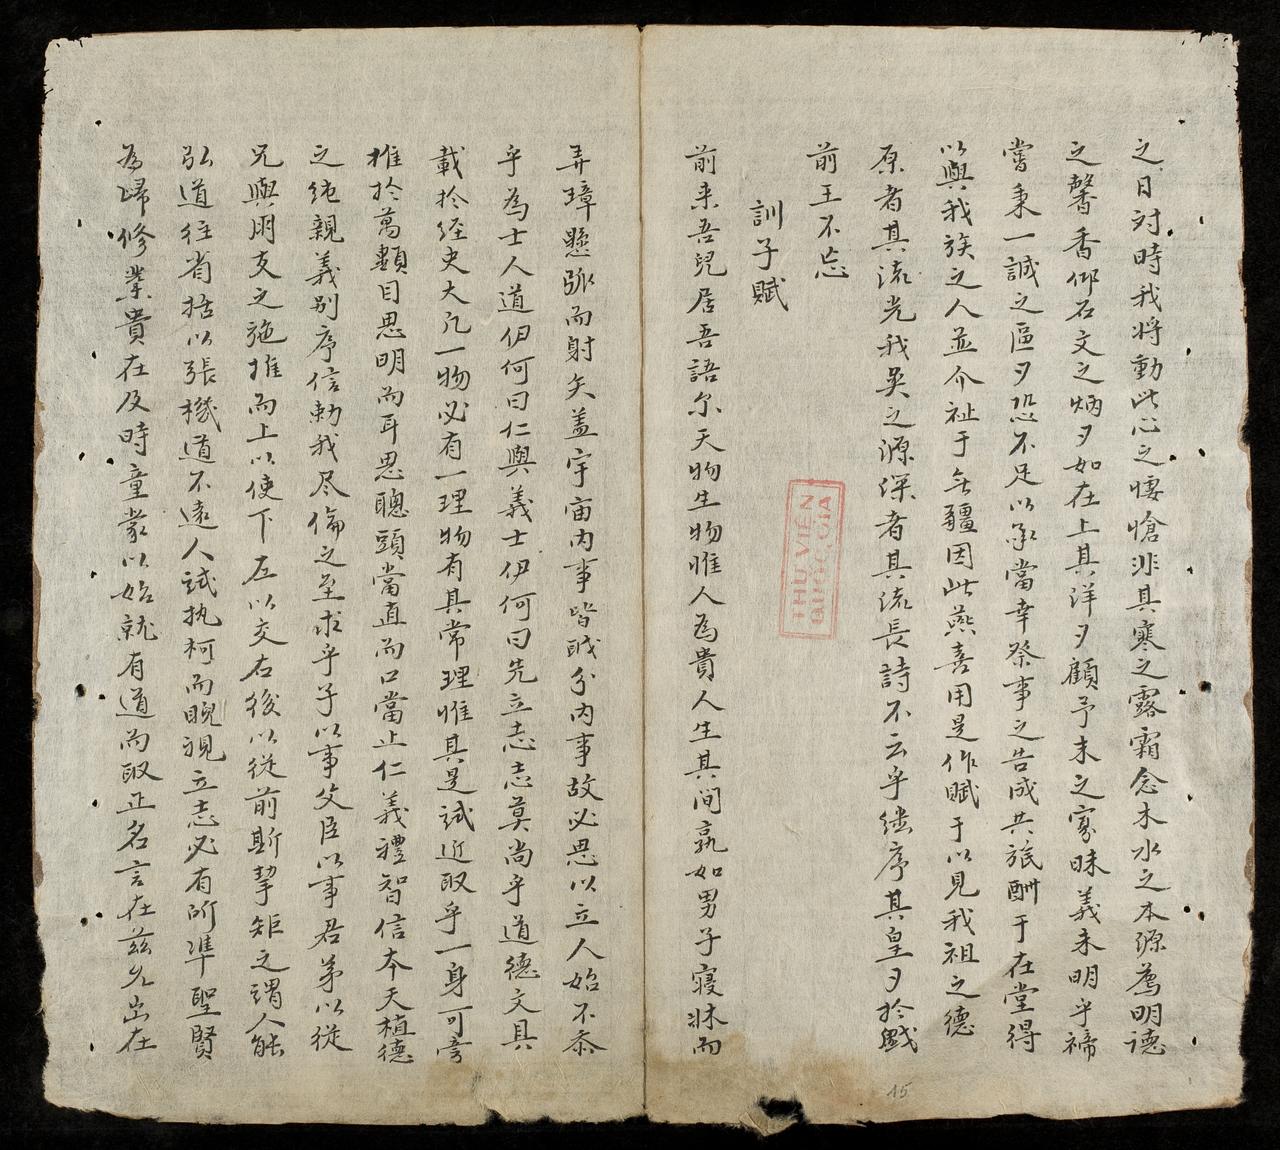 之日対時我将動此心之悽愴非其寒之露霜念木水之本源薦明德
之馨香仰石文之炳夕如在上其洋夕顧予末之寡昧義未明乎禘
嘗秉一誠之區夕恐不足以承當幸祭事之告成共旅酬于在堂得
以與我族之人並介祉于无疆因此燕喜用是作賦于以見我祖之德
原者其流光我吳之源深者其流長詩不云乎継序其皇夕於戲
前王不忘
訓子賦
前来吾兒居吾語尔天物生物惟人為貴人生其间孰如男子寝牀而
弄璋懸弧而射矢盖宇宙内事皆職分内事故必思以立人始不忝
乎為士人道伊何曰仁與義士伊何曰先立志志莫尚乎道德文具
載於経史大凡一物必有一理物有其常理惟其是試近取乎一身可旁
推於萬類目思明而耳思聰頭當直而口當止仁義禮智信本天植德
之純親義别序信勑我尽倫之至求乎子以事父臣以事君弟以從
兄與朋友之施推而上以使下左以交右後以從前斯挈矩之謂人能
弘道往省括以張機道不遠人試执柯而睨視立志必有所準聖賢
為歸修業貴在及時童蒙以始就有道而取正名言在茲允出在
THƯ VIỆN
QUỐC GIA
15